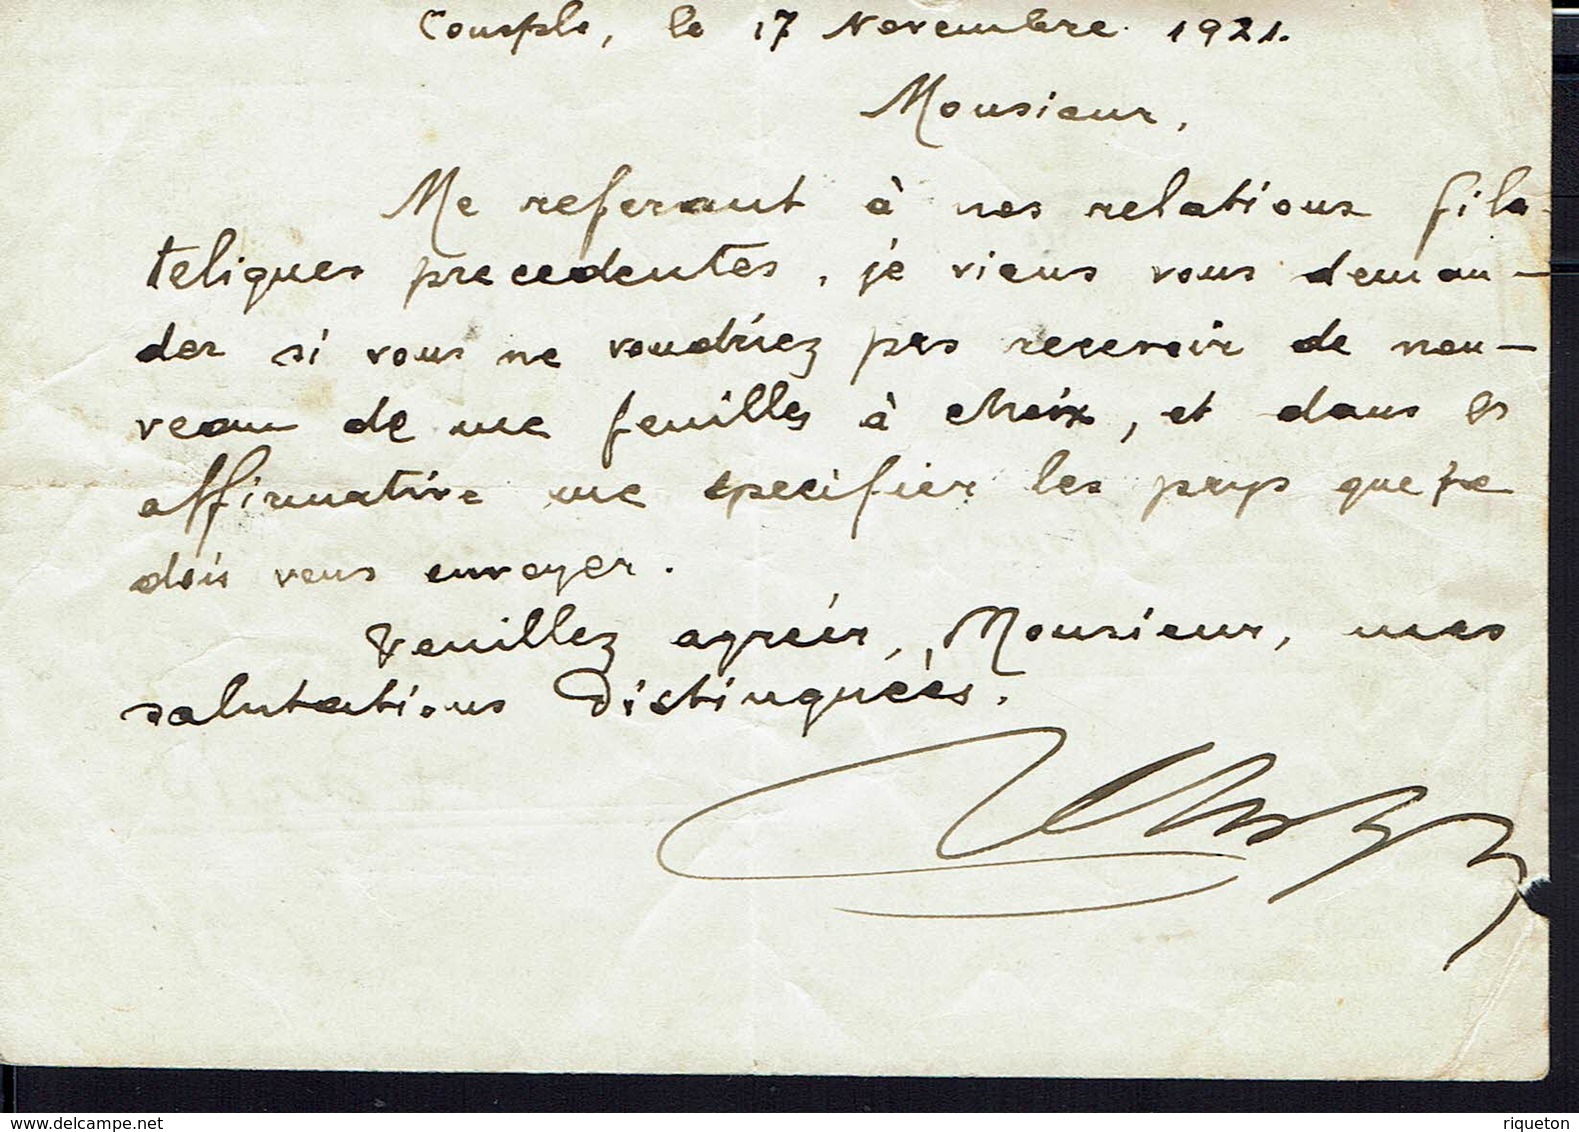 Consple, le 17 Novembre 1921.
Monsieur,
Me referant à nos relations fila-
teliques precedentes, je viens vous deman-
der si vous ne voudriez pas recevoir de nou-
veau de me feuilles à choix, et dans
affirmative me specifier les pays que je
dois vous envoyer.
Veuillez agréer, Monsieur, mes
salutations distinguées.
www.delcampe.net
riqueton